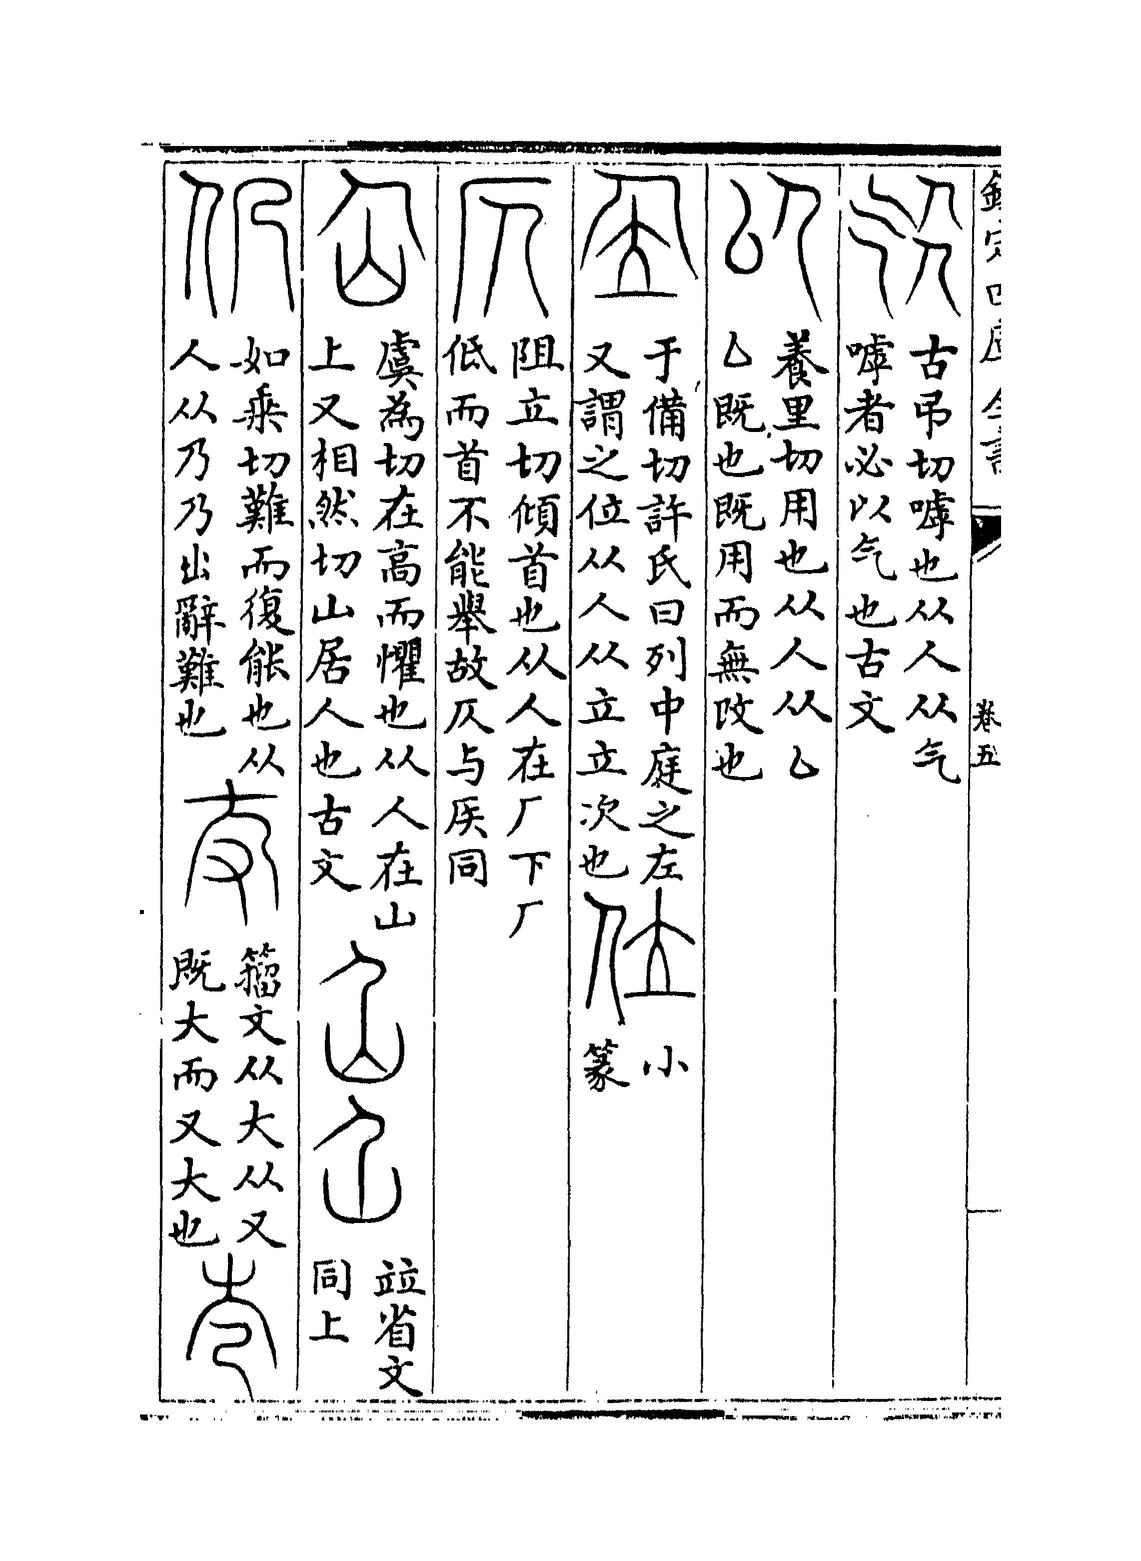 欽定四庫全書
卷五
古弔切噓也从人从气
噓者必以气也古文
養里切用也从人从
既也既用而無攺也
于備切許氏曰列中庭之左
又謂之位从人从立立次也
小
篆
阻立切傾首也从人在厂下厂
低而首不能舉故仄与同
虞為切在高而懼也从人在山
上又相然切山居人也古文
竝省文
同上
如乘切難而復能也从
人从乃乃出辭難也
籀文从大从又
既大而又大也